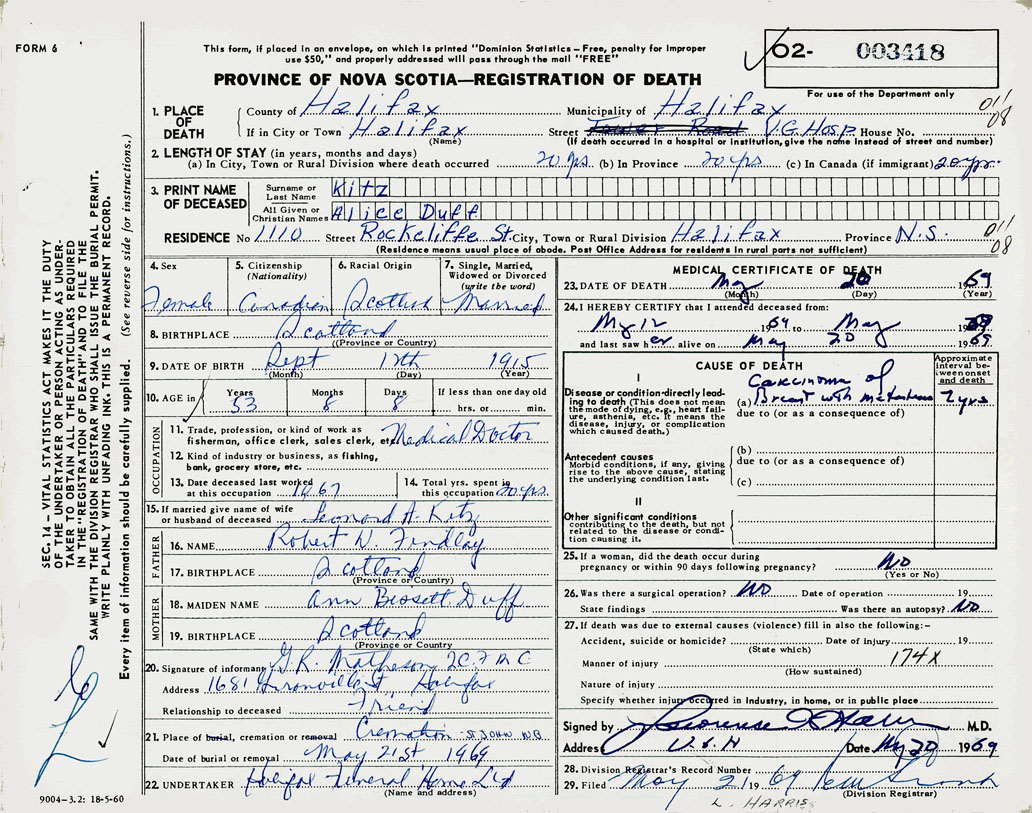 FORM 6
This form, if placed in an envelope, on which is printed "Dominion Statistics – Free, penalty for improper
use $50," and properly addressed will pass through the mail "FREE"
02- 003418
PROVINCE OF NOVA SCOTIA—REGISTRATION OF DEATH
For use of the Department only
1. PLACE OF DEATH
County of Halifax Municipality of Halifax 011
08
If in City or Town Halifax Street Tower Road V.G. Hosp House No.
(Name) (If death occurred in a hospital or institution, give the name instead of street and number)
2. LENGTH OF STAY (in years, months and days)
(a) In City, Town or Rural Division where death occurred 20 yrs (b) In Province 20 yrs (c) In Canada (if immigrant) 20 yrs.
3. PRINT NAME OF DECEASED
Surname or Last Name Kitz
All Given or Christian Names Alice Duff
RESIDENCE No 1110 Street Rockcliffe St City, Town or Rural Division Halifax Province N.S. 011
08
(Residence means usual place of abode. Post Office Address for residents in rural parts not sufficient)
4. Sex Female
5. Citizenship (Nationality) Canadian
6. Racial Origin Scottish
7. Single, Married, Widowed or Divorced (write the word) Married
8. BIRTHPLACE Scotland
(Province or Country)
9. DATE OF BIRTH Sept 12th 1915
(Month) (Day) (Year)
10. AGE in Years 53 Months 8 Days 8 If less than one day old
hrs. or min.
OCCUPATION
11. Trade, profession, or kind of work as
fisherman, office clerk, sales clerk, etc. Medical Doctor
12. Kind of industry or business, as fishing,
bank, grocery store, etc.
13. Date deceased last worked
at this occupation 1967
14. Total yrs. spent in
this occupation 20 yrs.
15. If married give name of wife
or husband of deceased Leonard A. Kitz
FATHER
16. NAME Robert W. Findlay
17. BIRTHPLACE Scotland
(Province or Country)
MOTHER
18. MAIDEN NAME Ann Duff
19. BIRTHPLACE Scotland
(Province or Country)
20. Signature of informant G.R. Matheson
Address 1681 Halifax
Relationship to deceased Friend
21. Place of burial, cremation or removal Cremation - St. John N.B.
Date of burial or removal May 21st 1969
22. UNDERTAKER Halifax Funeral Home Ltd
(Name and address)
MEDICAL CERTIFICATE OF DEATH
23. DATE OF DEATH May 20 1969
(Month) (Day) (Year)
24. I HEREBY CERTIFY that I attended deceased from:
May 12 1969 to May 1969
and last saw her alive on May 20 1969
CAUSE OF DEATH
Approximate interval between onset and death
I
Disease or condition directly leading
to death (This does not mean
the mode of dying, e.g., heart failure,
asthenia, etc. It means the
disease, injury, or complication
which caused death.)
Carcinoma of
(a) Breast with metastases 2 yrs
due to (or as a consequence of)
Antecedent causes
Morbid conditions, if any, giving
rise to the above cause, stating
the underlying condition last.
(b)
due to (or as a consequence of)
(c)
II
Other significant conditions
contributing to the death, but not
related to the disease or condition
causing it.
25. If a woman, did the death occur during
pregnancy or within 90 days following pregnancy? No
(Yes or No)
26. Was there a surgical operation? No Date of operation 19
State findings Was there an autopsy? No
27. If death was due to external causes (violence) fill in also the following:—
Accident, suicide or homicide? Date of injury 19
(State which)
Manner of injury 174X
(How sustained)
Nature of injury
Specify whether injury occurred in Industry, in home, or in public place
Signed by M.D.
Address Date May 20 1969
28. Division Registrar's Record Number
29. Filed May 21 69
(Division Registrar)
L. HARRIS
SEC. 14 – VITAL STATISTICS ACT MAKES IT THE DUTY
OF THE UNDERTAKER OR PERSON ACTING AS UNDERTAKER
TO OBTAIN ALL THE PARTICULARS REQUIRED
IN THE "REGISTRATION OF DEATH" AND TO FILE THE
SAME WITH THE DIVISION REGISTRAR WHO SHALL ISSUE THE BURIAL PERMIT.
WRITE PLAINLY WITH UNFADING INK. THIS IS A PERMANENT RECORD.
Every item of information should be carefully supplied. (See reverse side for instructions.)
9004–3.2: 18-5-60